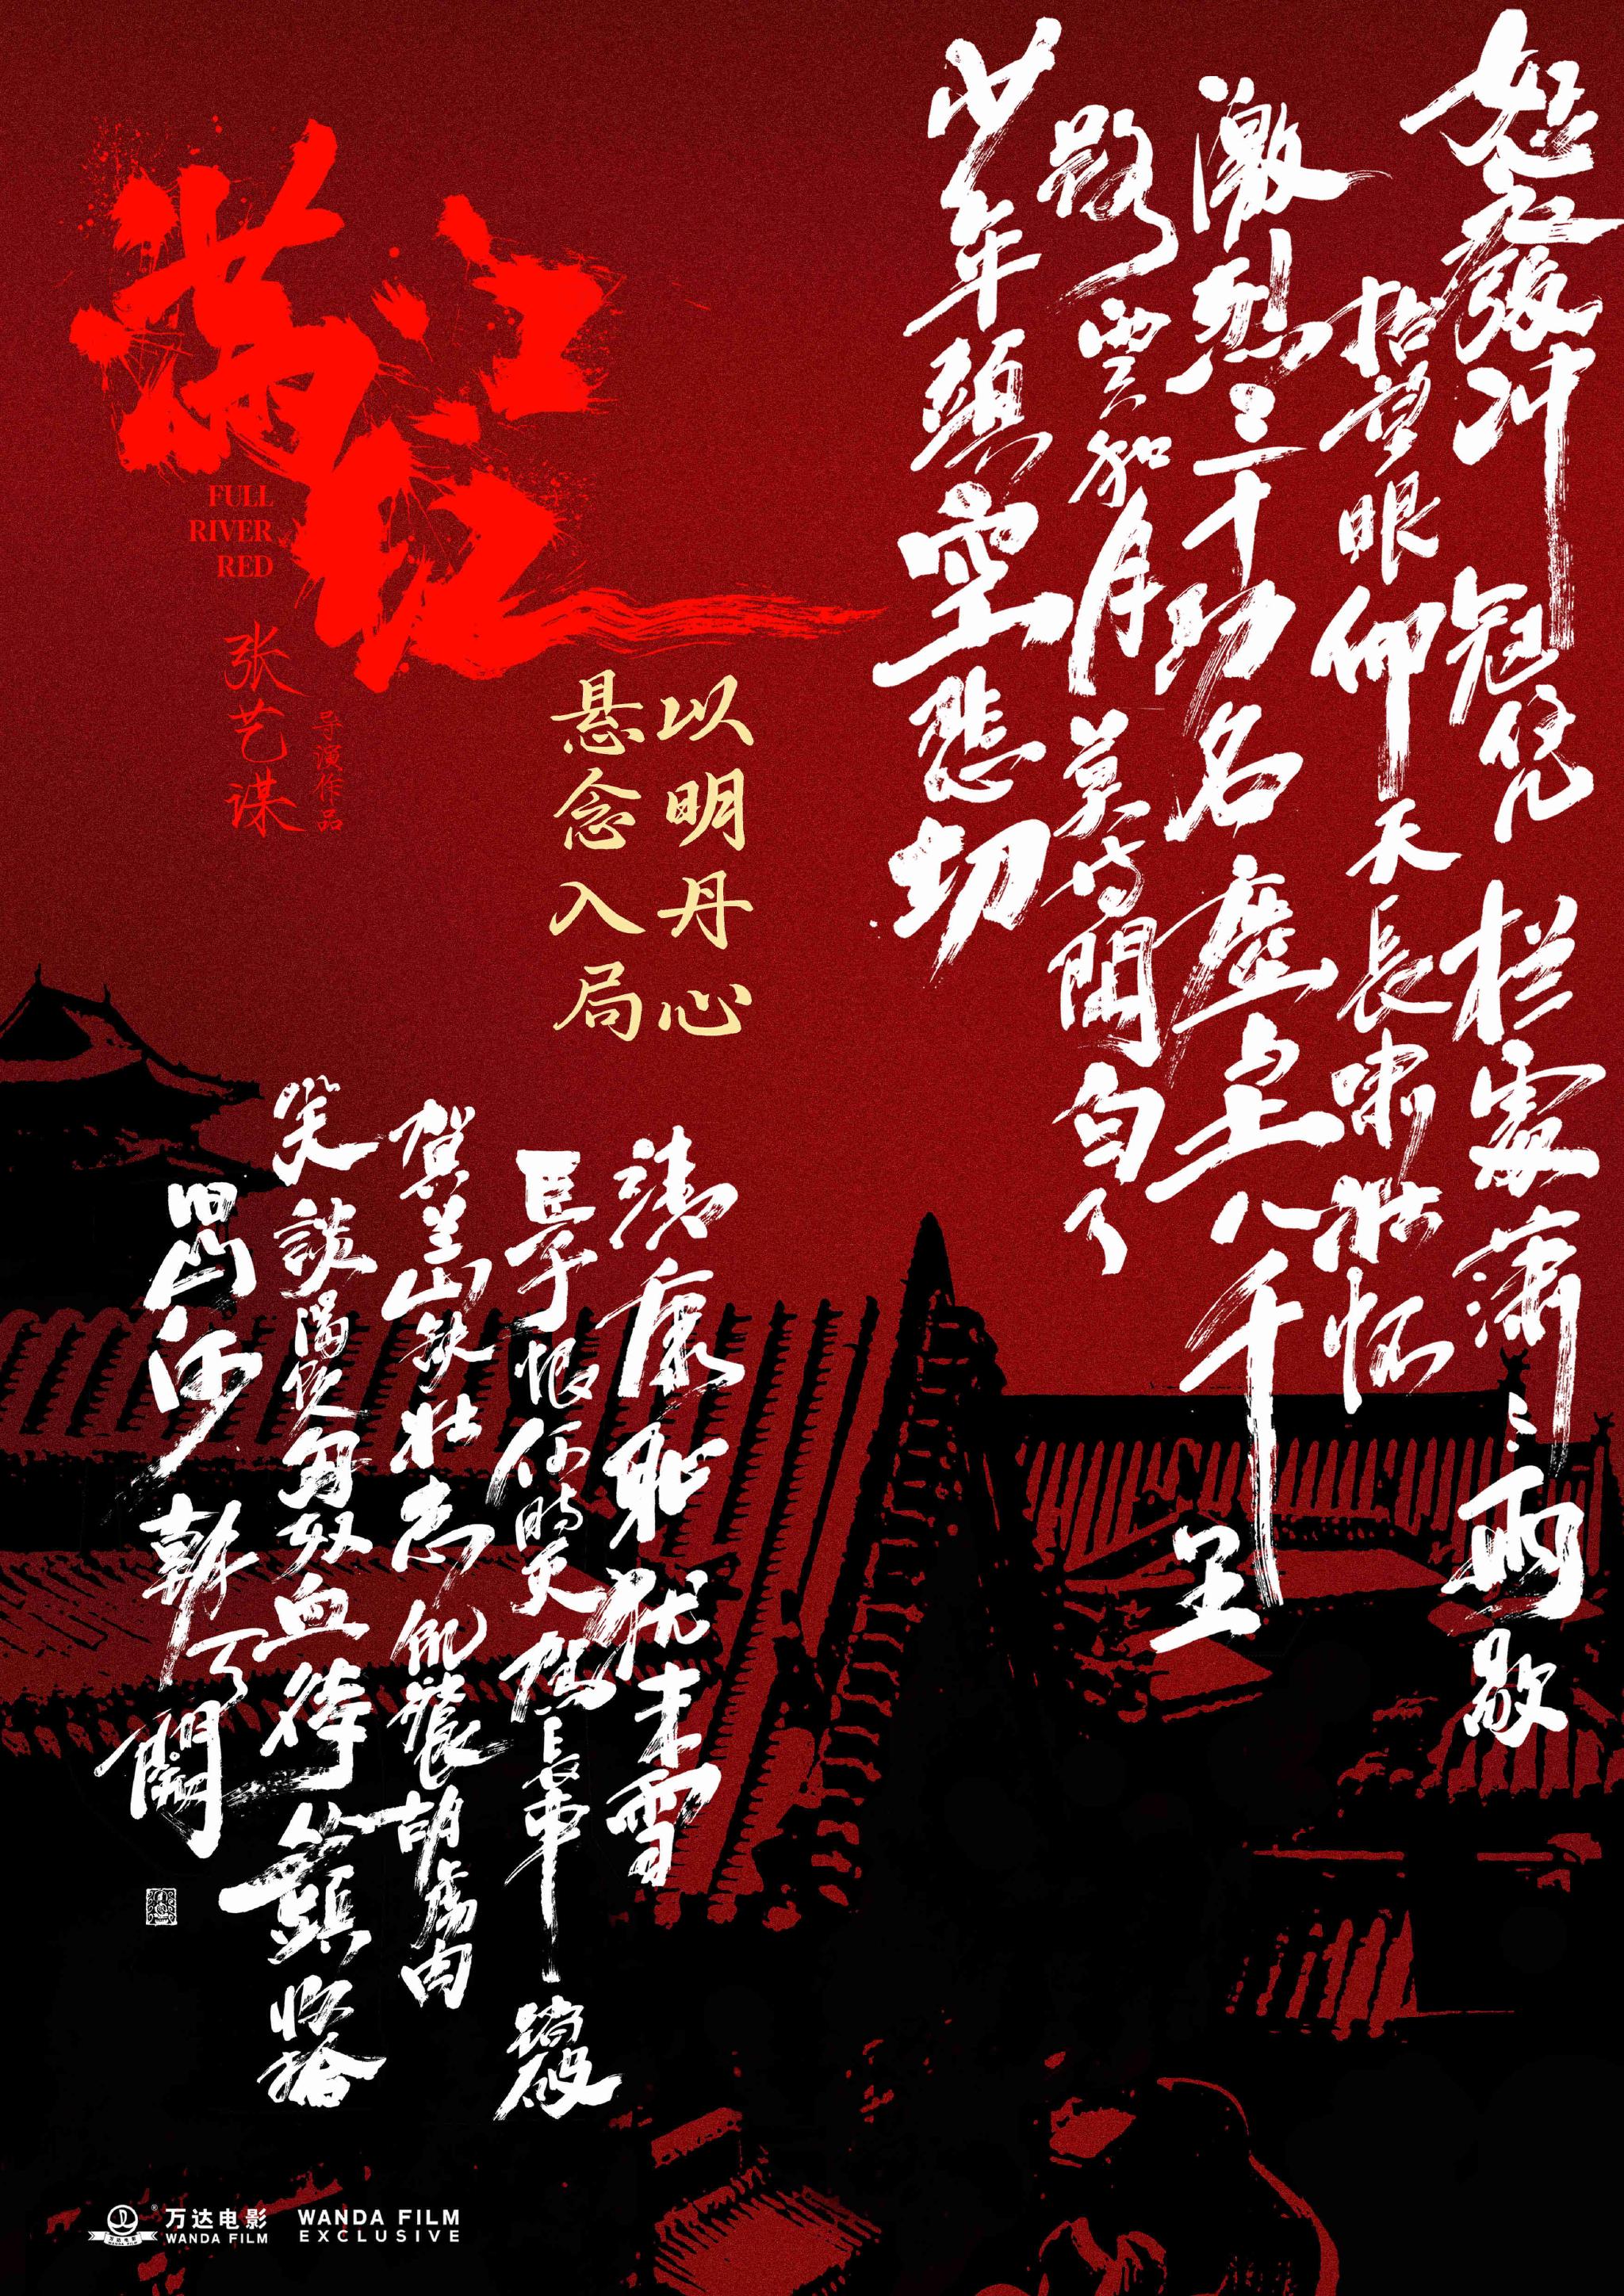 满江红
FULL
RIVER
RED
张艺谋
导演作品
以明丹心
悬念入局
怒髮冲冠凭栏處潇〻雨歇
抬望眼仰天長啸壮怀
激烈三十功名塵与土八千里
路雲和月莫等閒白了
少年頭空悲切
靖康耻犹未雪
臣子恨何時灭駕長車踏破
賀兰山缺壮志飢餐胡虜肉
笑談渴饮匈奴血待從頭收拾
旧山河朝天闕
万达电影
WANDA FILM
WANDA FILM
EXCLUSIVE